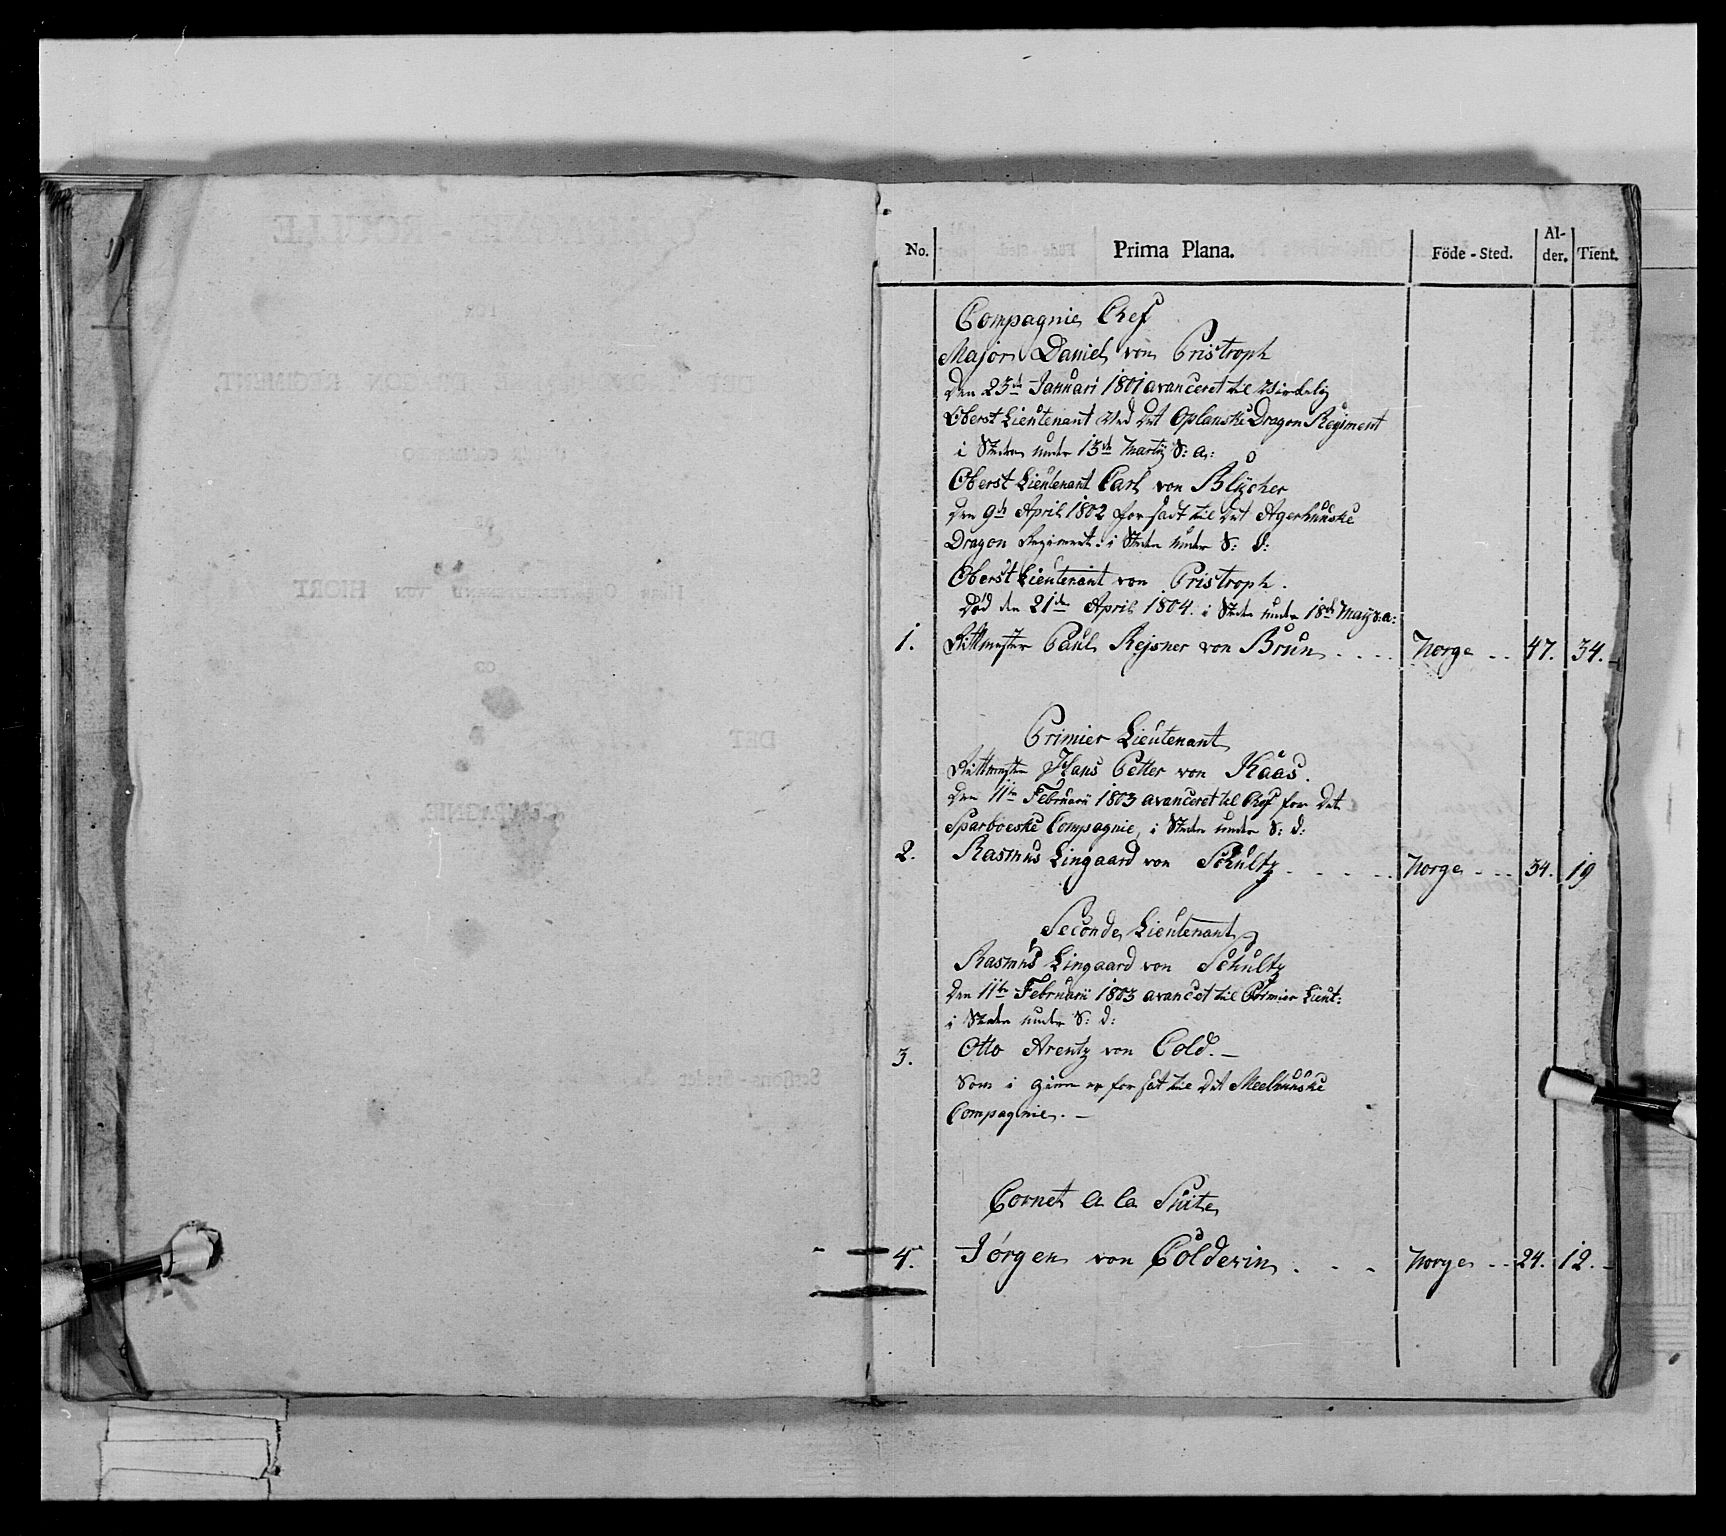 No. Prima Plana. Föde - Sted. Al-der. Tient.
Compagnie Chef
Major Daniel von Pristroph
Den 23de Januari 1801 avanceret til Virkelig
Oberst Lieutenant Ved det Oplanske Dragon Regiment
i Steden under 13de Martij S: a:
Oberst Lieutenant Carl von Blücher
Den 9de April 1802 forsadt til det Agerhuuske
Dragon Regiment: i Steden under S: d:
Oberst Lieutenant von Pristroph.
Död den 21de April 1804. i Steden under 18de Maij s: a:
1. Rittmester Paul Rejsner von Brun . . . . Norge . . 47. 34.
Primier Lieutenant
Rittmester Hans Petter von Kaas.
Den 11te Februarii 1803 avanceret til Chef for det
Sparboeske Compagnie, i Steden under S: d:
2. Rasmus Lingaard von Schultz . . . . . Norge . . . 34. 19
Seconde Lieutenant
Rasmus Lingaard von Schultz
Den 11te Februarii 1803 avancet til Primier Lieut:
i Steden under S: d:
3. Otto Arentz von Cold. —
Som i gien er forsat til det Meelhuuske
Compagnie. —
Cornet a la Suite
4. Jörgen von Coldevin . . . Norge . . 24. 12.